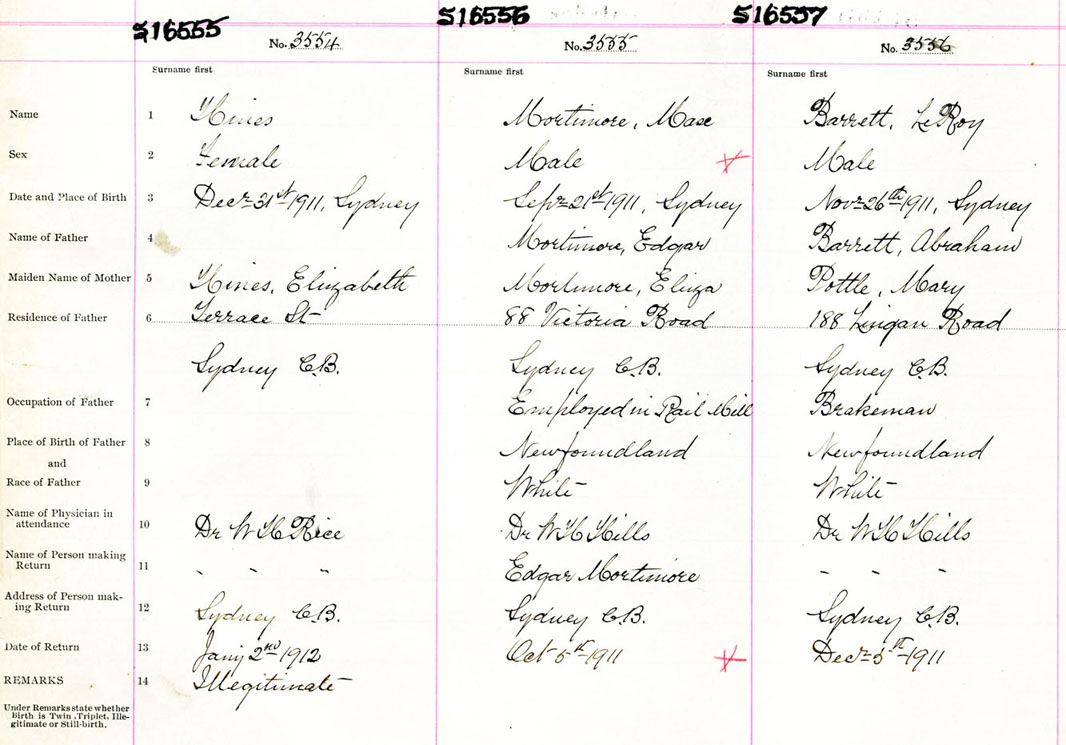 S16555 S16556 S16557
No. 3554 No. 3555 No. 3556
Surname first Surname first Surname first
Name 1 Hines Mortimore, Mase Barrett, LeRoy
Sex 2 Female Male Male
Date and Place of Birth 3 Decr 31st 1911, Sydney Sepr 21st 1911, Sydney Novr 26th 1911, Sydney
Name of Father 4 Mortimore, Edgar Barrett, Abraham
Maiden Name of Mother 5 Hines, Elizabeth Mortimore, Eliza Pottle, Mary
Residence of Father 6 Terrace St 88 Victoria Road 188 Lingan Road
Sydney C.B. Sydney C.B. Sydney C.B.
Occupation of Father 7 Employed in Rail Mill Brakeman
Place of Birth of Father 8 Newfoundland Newfoundland
and
Race of Father 9 White White
Name of Physician in
attendance 10 Dr W H Rice Dr W H Hills Dr W H Hills
Name of Person making
Return 11 " " " Edgar Mortimore " " "
Address of Person mak-
ing Return 12 Sydney C.B. Sydney C.B. Sydney C.B.
Date of Return 13 Jany 2nd 1912 Oct 5th 1911 Decr 5th 1911
REMARKS 14 Illegitimate
Under Remarks state whether
Birth is Twin, Triplet, Ille-
gitimate or Still-birth.